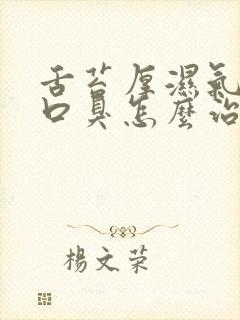 舌苔厚濕氣
口臭怎麼治
楊文榮